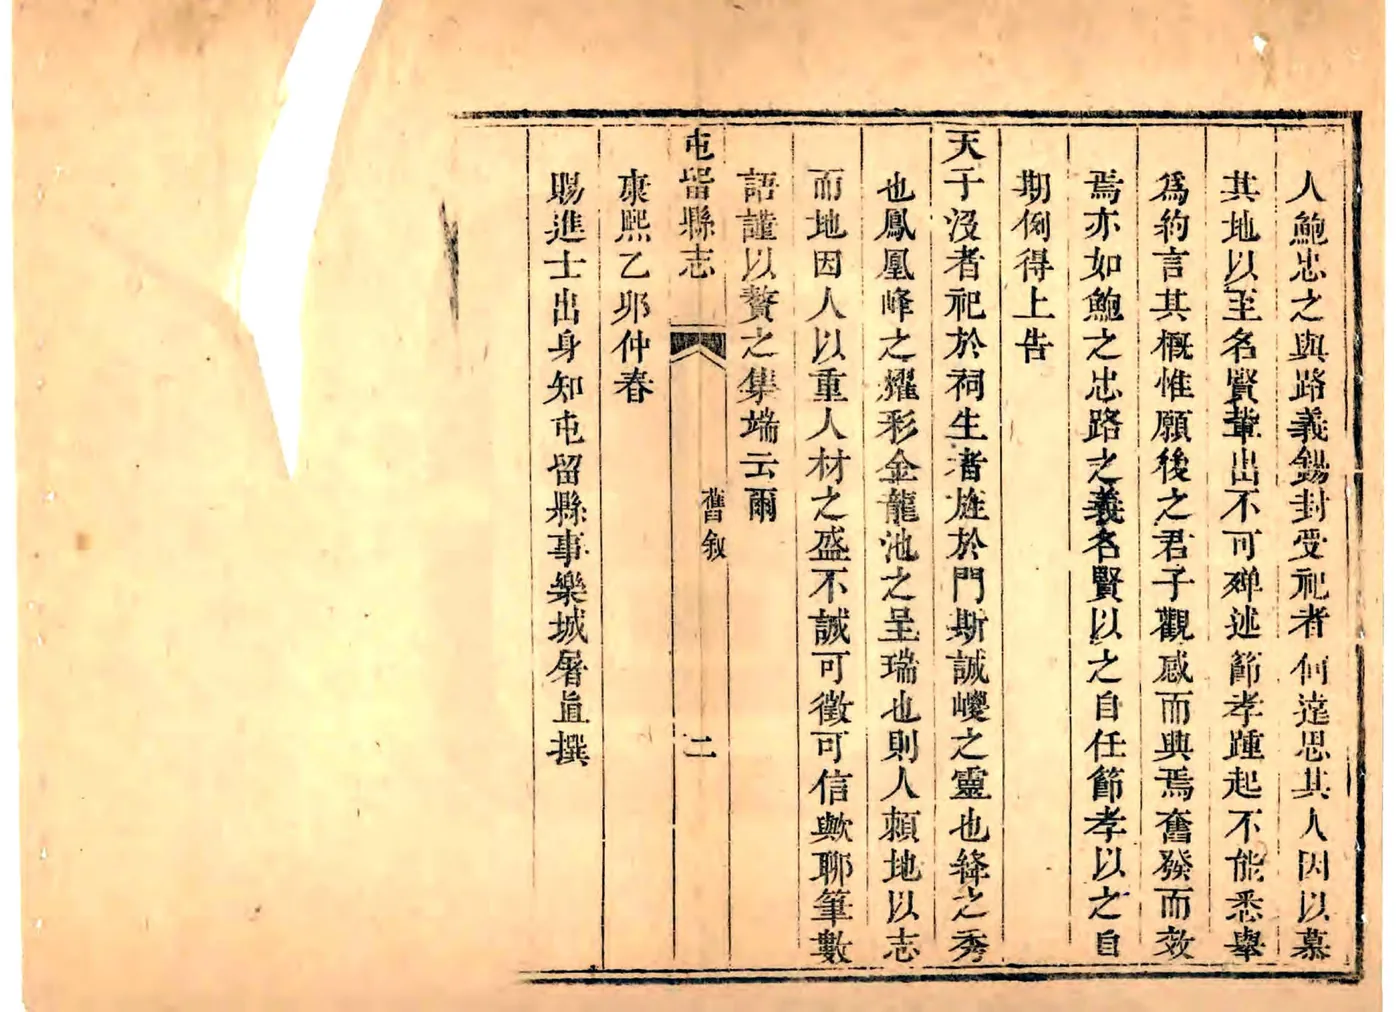 人鮑忠之與路義錫封受祀者何違思其人因以慕
其地以至名賢輩出不可殫述節孝踵起不能悉舉
爲約言其概惟願後之君子觀感而興焉奮發而效
焉亦如鮑之忠路之義名賢以之自任節孝以之自
期例得上告
天子沒者祀於祠生者旌於門斯誠嶐之靈也絳之秀
也鳳凰峰之耀彩金龍池之呈瑞也則人賴地以志
而地因人以重人材之盛不誠可徵可信歟聊筆數
語謹以贅之集端云爾
屯留縣志
舊敘
二
康熙乙卯仲春
賜進士出身知屯留縣事欒城屠直撰